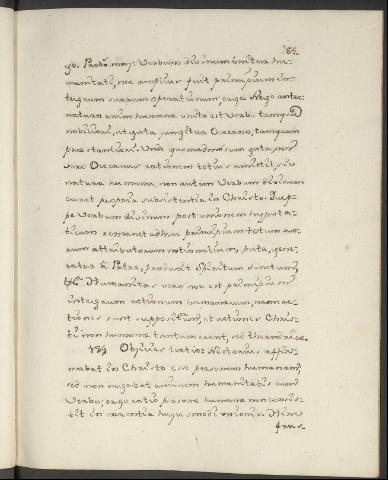 84.
go. Probo. maj: Verbum divinum unitur hu-
manitati, nec amplius fuit principium in-
tegrum suarum operationum, ergo. Nego antec.
natura enim humana unita est Verbo tamquam
nobiliori, ut guta jungitur Oceano, tamquam
præstantiori. Unde quemadmodum guta, non
vero Oceanus rationem totius amittit, sic
natura humana, non autem Verbum divinum
caret propria subsistentia in Christo. Quip-
pe Verbum divinum post unionem hyposta-
ticam remanet adhuc principium totum suo-
rum attributorum notionalium, puta, gene-
ratur à Patre, producit Spiritum sanctum,
Humanitas vero non est principium
integrum actionum humanarum, nam ac-
tiones sunt suppositorum, et actiones Chris-
ti non humanæ tantum erant, sed theandricæ.
Objicies tertio: Nestorius affir-
mabat in Christo esse personam humanam,
sed non negabat unionem humanitatis cum
Verbo, ergo ratio personæ humanæ non consis-
tit in carentia hujusmodi unionis. Hinc
frus-